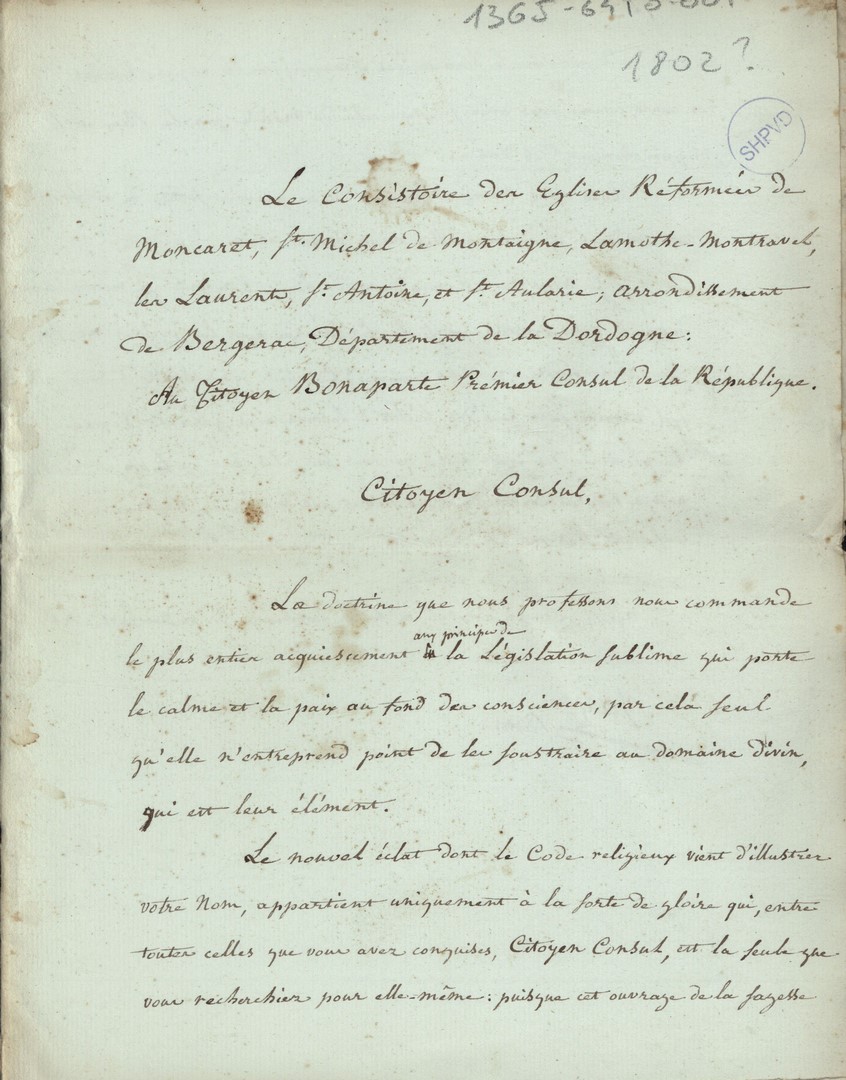 1802?
SHPVD
Le Consistoire des Eglises Réformées de
Moncaret, St. Michel de Montaigne, Lamothe-Montravel,
les Laurents, St. Antoine, et St. Aularie; arrondissement
de Bergerac, Département de la Dordogne:
Au Citoyen Bonaparte Prémier Consul de la République.
Citoyen Consul,
La doctrine que nous professons nous commande
aux principes de
le plus entier acquiescement la Législation sublime qui porte
le calme et la paix au fond des consciences, par cela seul
qu'elle n'entreprend point de les soustraire au domaine divin,
qui est leur élément.
Le nouvel éclat dont le Code religieux vient d'illustrer
votre Nom, appartient uniquement à la sorte de gloire qui, entre
toutes celles que vous avez conquises, Citoyen Consul, est la seule que
vous recherchiez pour elle-même: puisque cet ouvrage de la sagesse